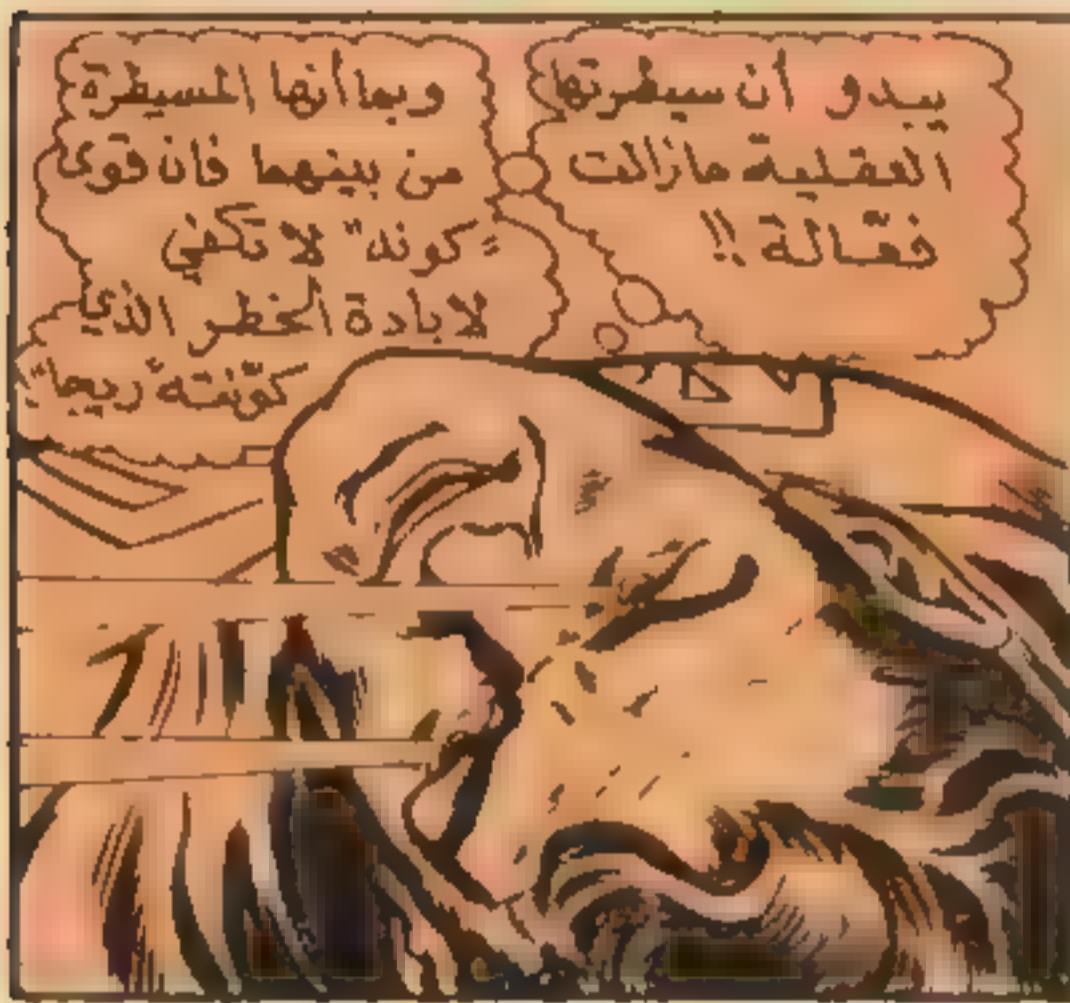 يبدو أن سيطرتها
العقلية مازالت
فعّالة !!
وبما أنها المسيطرة
من بينهما فان قوى
"كوند" لا تكفي
لابادة الخطر الذي
كوّنته "ريما"